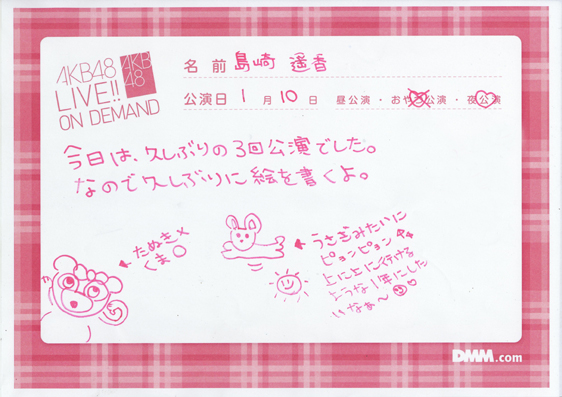 AKB48
LIVE!!
ON DEMAND
AKB
48
名前 島崎 遥香
公演日 1月10日 昼公演・おやつ公演・夜公演
今日は、久しぶりの3回公演でした。
なので久しぶりに絵を書くよ。
たぬき×
くま○
うさぎみたいに
ピョンピョン
上に上に行ける
ような1年にした
いなぁ〜
DMM.com